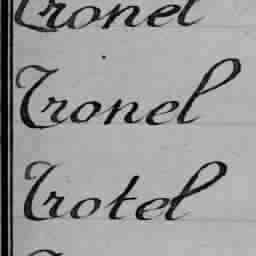 Tronel
Tronel
Trotel